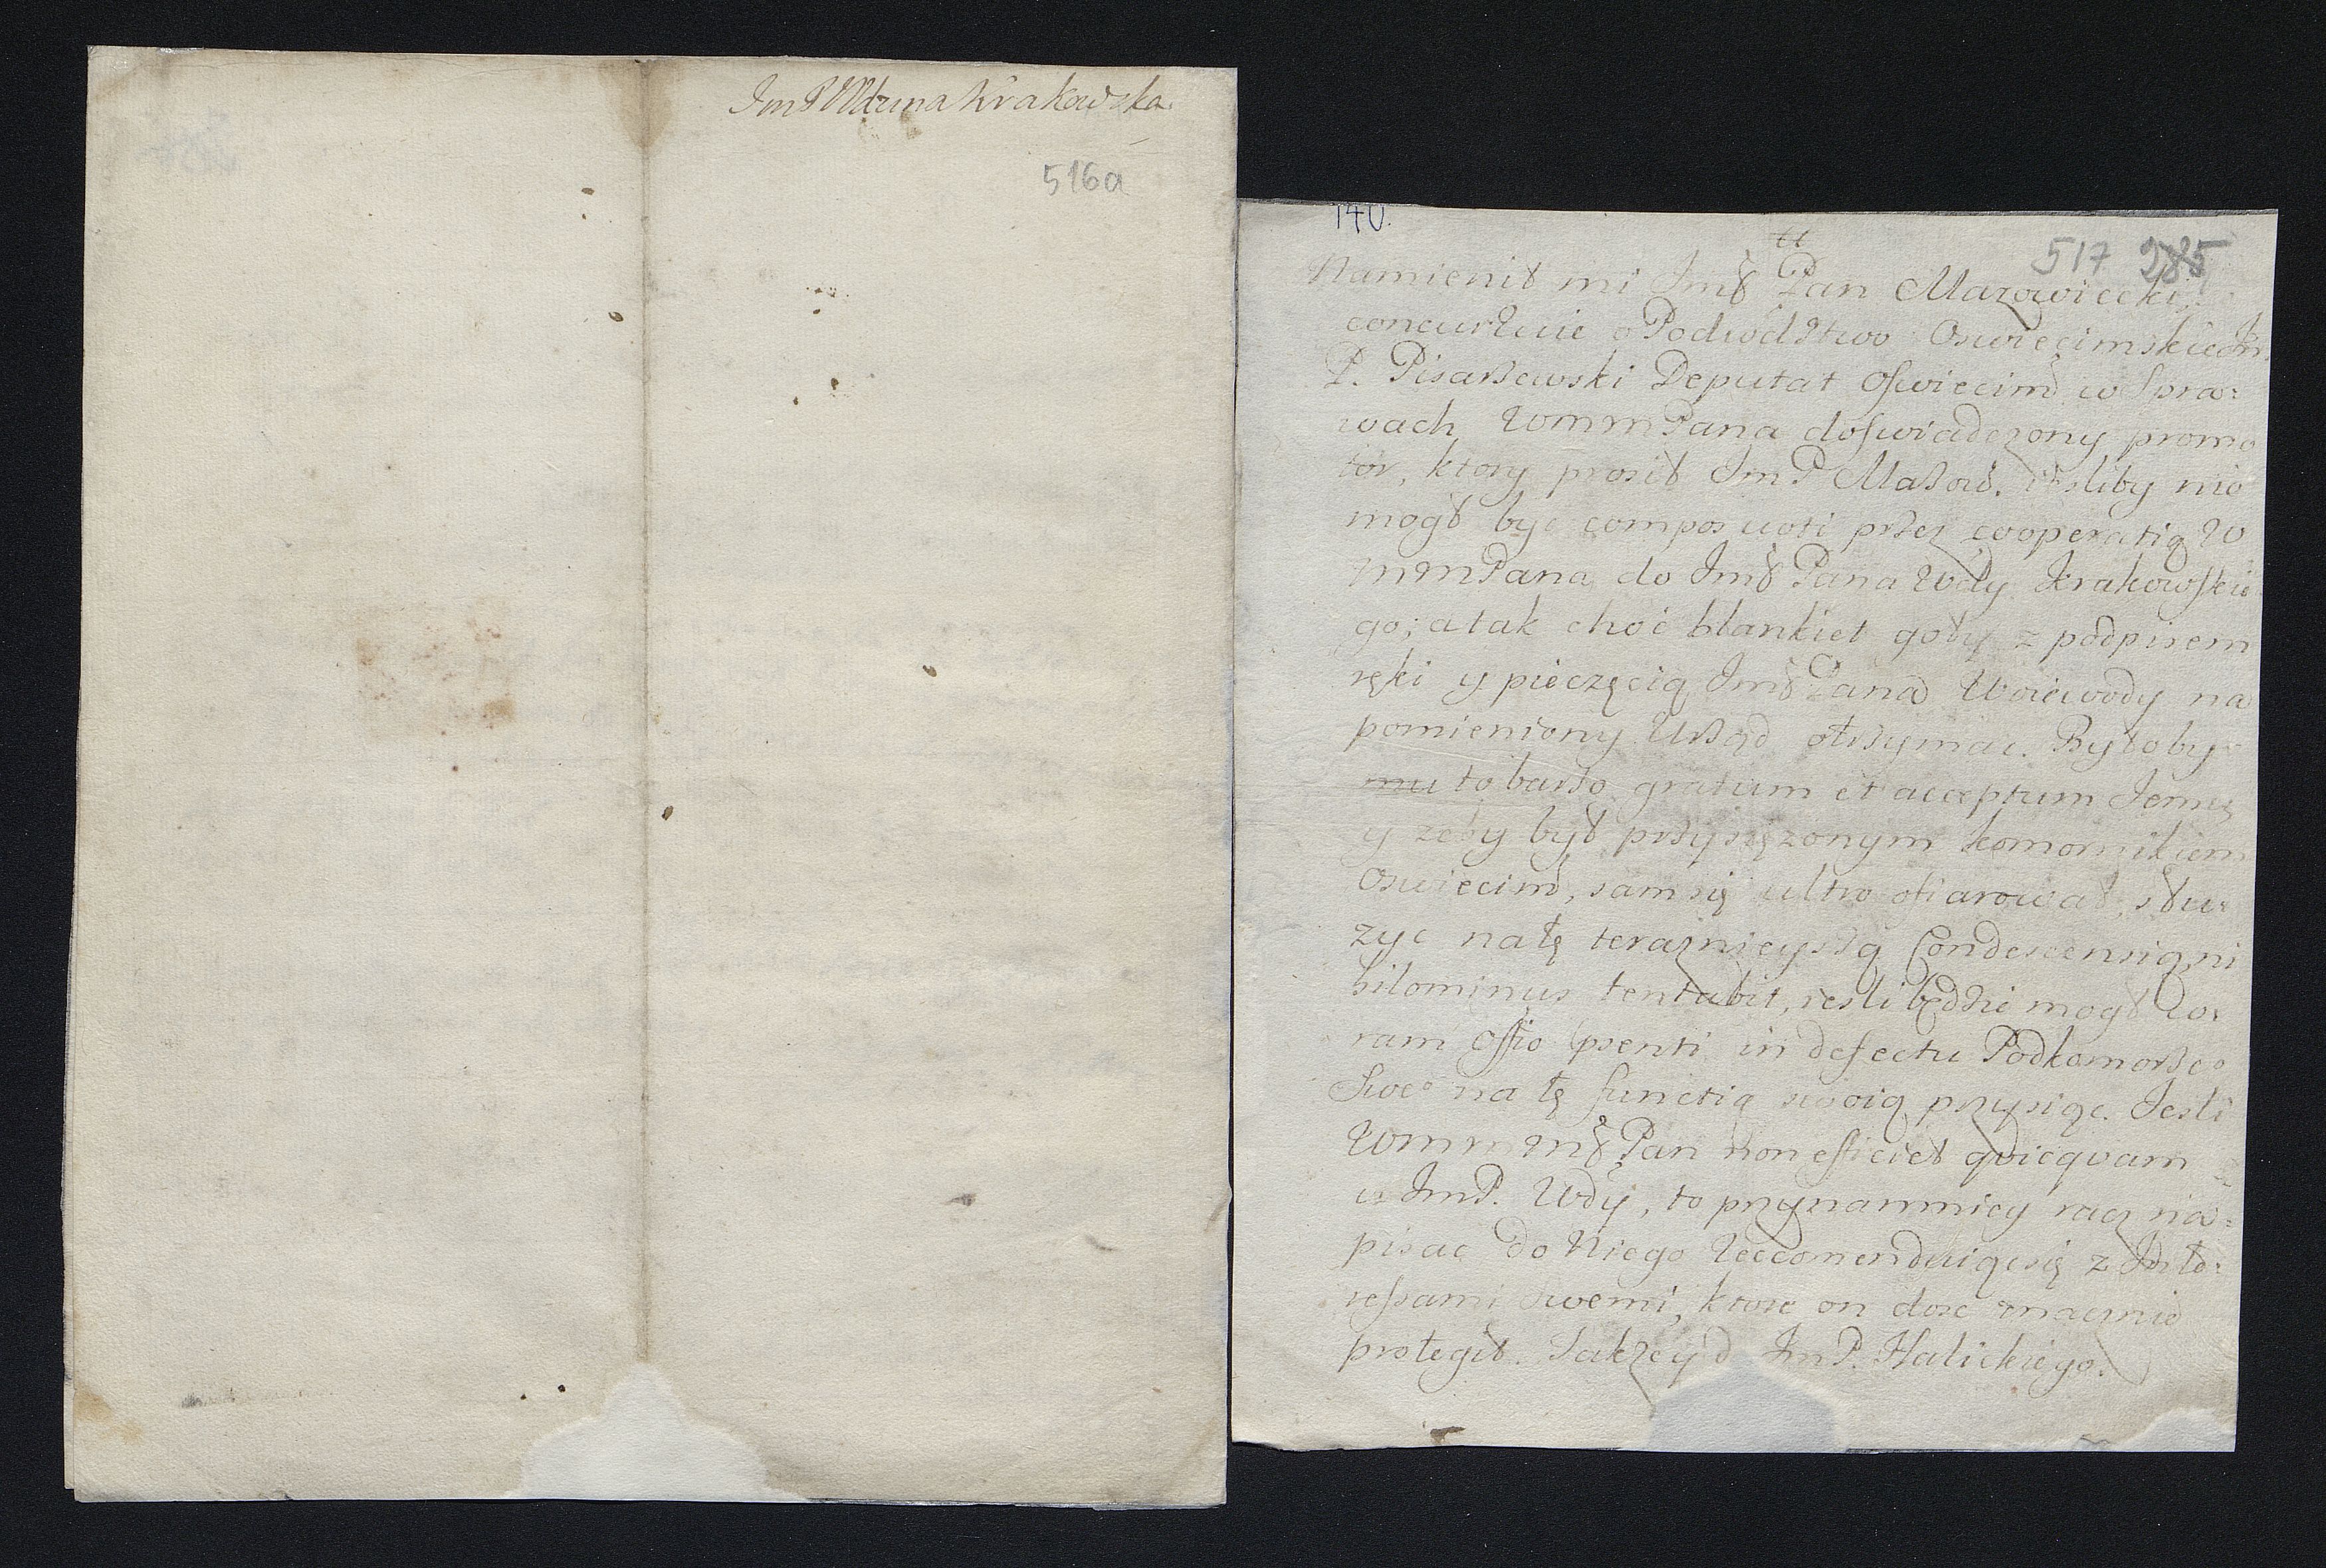 Im P Wdzina Krakowska
516a
140.
517 285
tt
Namienił mi Imć Pan Mazowiecki,
concurruie o Podwodstwo Oswięcimskie Im
P. Pisarzewski Deputat Oswiecimṡ w Spra:
wach WMMPana doswiadczony promo
tor, ktory prosił Im P Mazow. iesliby nie
mogł byc compos voti przez cooperatią W
MMPana do Imć Pana Wdy Krakowskie
go; a tak choć blankiet goły z podpisem
ręki y pieczęcią Imć Pana Woiewody na
pomieniony Urząd otrzymac. Byłoby
mu to barzo gratum et acceptum Jemu,
y zeby był przysięzonym komornikiem
Oswiecimṡ, sam się ultro ofiarował, słu:
zyc na tę teraznieyszą Condescensią, ni
hilominus tentabit, iesli będzie mogł Co:
ram Offio psenti in defectu Podkomorzeo
Sweo na tę functią swoią przysiąc. Jesli
WMMMć Pan non efficiet qvicqvam
u ImP. Wdy, to przynamniey racz na:
pisac do Niego reccomenduiąc się z Inte:
ressami swemi, ktore on dosc znacznie
protegit. Takzey d Im P. Halickiego.